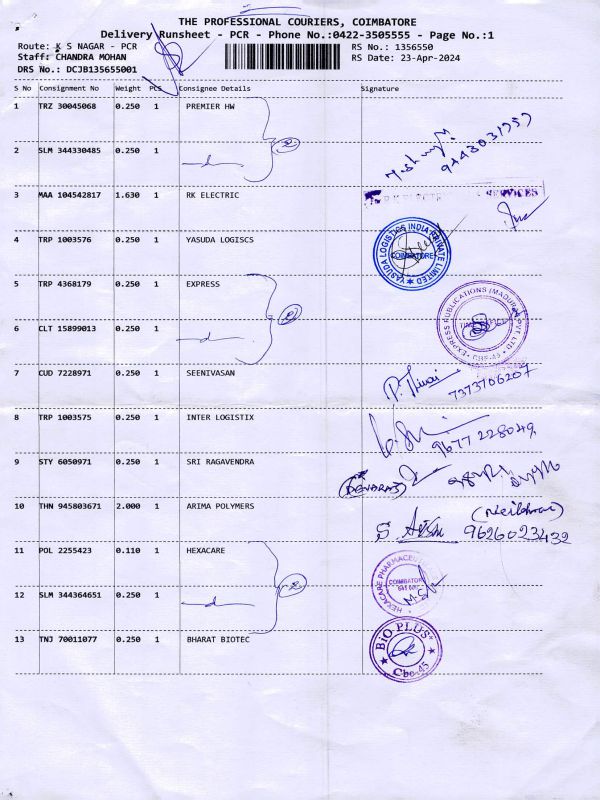 THE PROFESSIONAL COURIERS, COIMBATORE
Delivery Runsheet - PCR - Phone No.:0422-3505555 - Page No.:1
Route: K S NAGAR - PCR RS No.: 1356550
Staff: CHANDRA MOHAN RS Date: 23-Apr-2024
DRS No.: DCJB135655001
S No Consignment No Weight PCS Consignee Details Signature
1 TRZ 30045068 0.250 1 PREMIER HW
9443031757
2 SLM 344330485 0.250 1 2
3 MAA 104542817 1.630 1 RK ELECTRIC SERVICES
4 TRP 1003576 0.250 1 YASUDA LOGISCS
YASUDA LOGISTICS INDIA PRIVATE LIMITED
COIMBATORE
5 TRP 4368179 0.250 1 EXPRESS
2
EXPRESS PUBLICATIONS (MADURAI) PVT LTD
CBE-45
6 CLT 15899013 0.250 1
7 CUD 7228971 0.250 1 SEENIVASAN
7373706207
8 TRP 1003575 0.250 1 INTER LOGISTIX
9677 228049
9 STY 6050971 0.250 1 SRI RAGAVENDRA
(DEVARAJ)
10 THN 945803671 2.000 1 ARIMA POLYMERS
9626023432
11 POL 2255423 0.110 1 HEXACARE
HEXACARE PHARMACEU
COIMBATORE
2
12 SLM 344364651 0.250 1
13 TNJ 70011077 0.250 1 BHARAT BIOTEC
BiO PLUS
Cbe-45